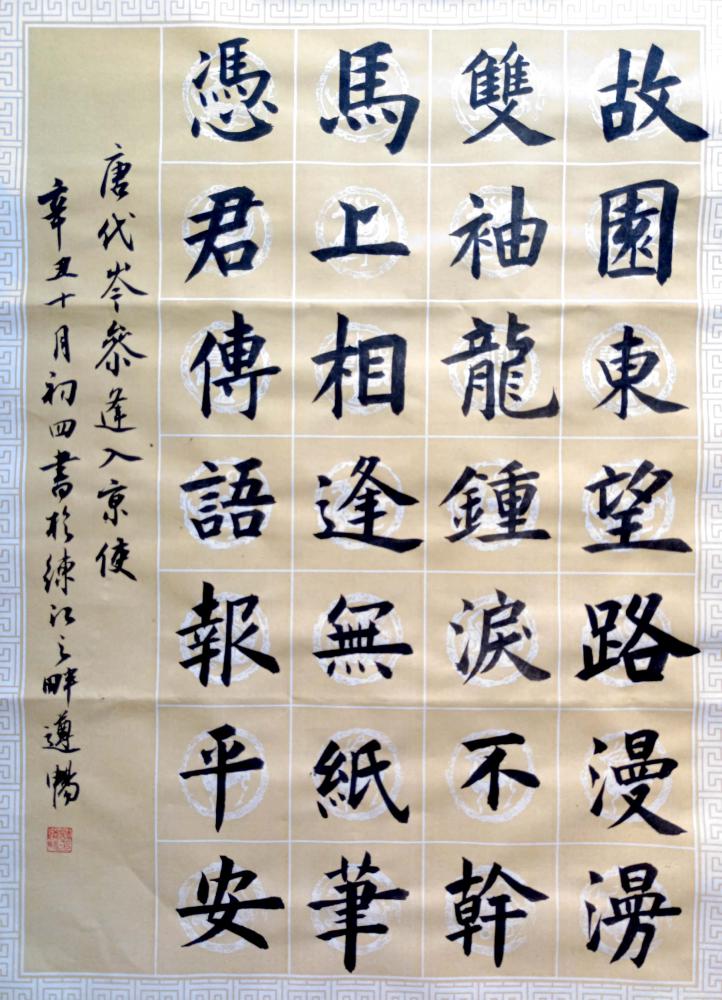 故園東望路漫澷
雙袖龍鍾淚不幹
馬上相逢無紙筆
憑君傳語報平安
唐代岑參逢入京使
辛丑十月初四書於練江之畔遵暢